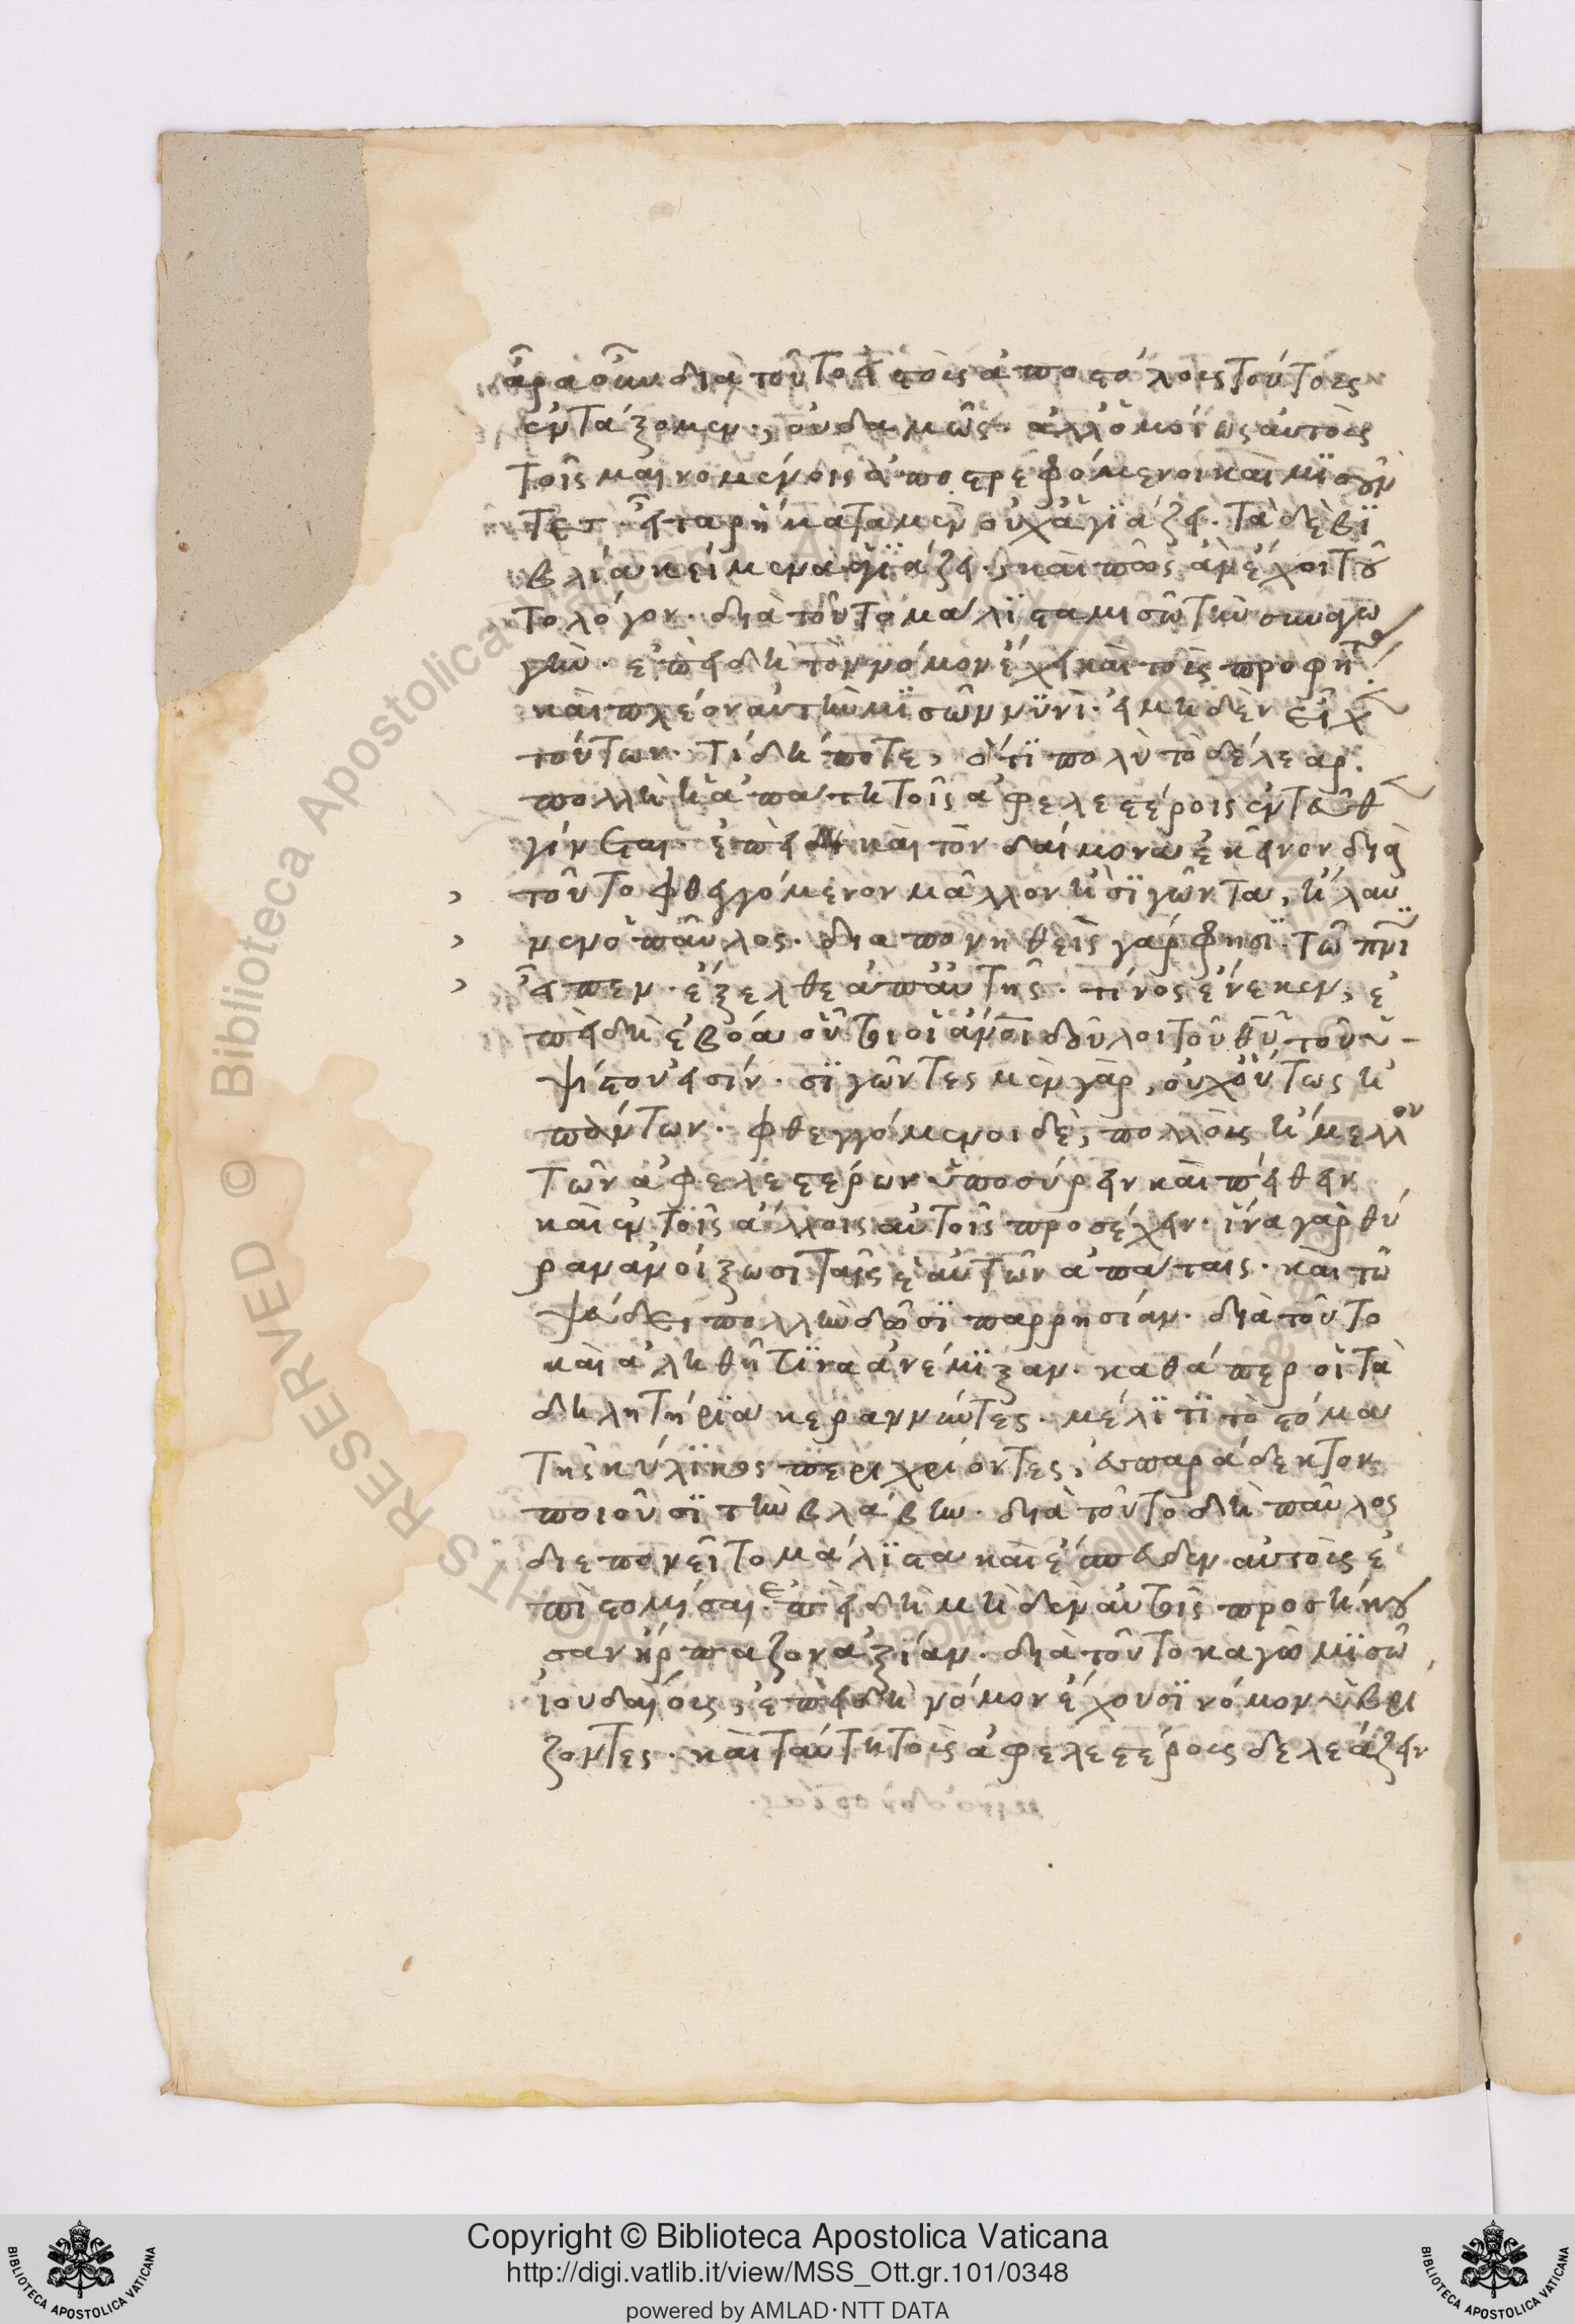 ἆρα οὖν διὰ τοῦτο ἐν τοῖς ἀποστόλοις τούτοις
ἐντάξομεν, οὐδαμῶς. ἀλλ' ὁμοίως αὐτοῖς
τοῖς μαινομένοις ἀποστρεφόμενοι καὶ μϊσοῦν
τες. εἶτα ῥήματα μὲν οὐχ ἁγϊάζει. τὰ δὲ βϊ
βλία κείμενα ἁγϊάζει. καὶ πῶς ἂν ἔχοι του
το λόγον. διὰ τοῦτο μάλϊστα μισῶ τὴν συναγω
γὴν. ἐπειδὴ τὸν νόμον ἔχει καὶ τοὺς προφήτας.
καὶ πλέον αὐτὴν μϊσῶ νῦνὶ. εἰ μηδὲν εἶχε
τούτων. τί δήποτε, ὅτϊ πολὺ τὸ δέλεαρ.
πολλὴ ἡ ἀπάτη τοῖς ἀφελεστέροις ἐνταῦθα
γίνεται. ἐπειδὴ καὶ τὸν δαίμονα ἐκεῖνον διὰ
τοῦτο φθεγγόμενον μᾶλλον ἢ σϊγῶντα, ἤλαυ
νεν ὁ παῦλος. διαπονηθεὶς γάρ φησϊ. τῶ πνϊ
εἶπεν. ἔξελθε ἀπ' αὐτῆς. τίνος ἕνεκεν, ἐ
πειδὴ ἐβόα οὗτοι οἱ ἄνοι δοῦλοι τοῦ θυ τοῦ ὑ-
ψίστου εἰσίν. σϊγῶντες μὲν γὰρ, οὐχ οὕτως ἠ
πάτων. φθεγγόμενοι δὲ, πολλοὺς ἤμελλον
τῶν ἀφελεστέρων ὑποσύρειν καὶ πείθειν
καὶ ἐν τοῖς ἄλλοις αὐτοῖς προσέχειν. ἵνα γὰρ θύ
ραν ἀνοίξωσι ταῖς ἑαυτῶν ἀπάταις. καὶ τῶ
ψεύδει πολλὴν δῶσϊ παρρησίαν. διὰ τοῦτο
καὶ ἀληθῆ τϊνα ἀνέμϊξαν. καθάπερ οἱ τὰ
δηλητήρϊα κεραννύντες. μέλϊτϊ τὸ στόμα
τῆς κύλϊκος περιχρίοντες, εὐπαράδεκτον
ποιοῦσϊ τὴν βλάβην. διὰ τοῦτο δὴ παῦλος
διεπονεῖτο μάλϊστα καὶ ἔσπευδεν αὐτοὺς ἐ
πιστομίσαι. ἐπειδὴ μηδὲν αὐτοῖς προσήκου
σαν ἥρπαζον ἀξίαν. διὰ τοῦτο καγὼ μϊσῶ
ἰουδαίους, ἐπειδὴ νόμον ἔχουσϊ νόμον ὑβρί
ζοντες. καὶ ταύτη τοὺς ἀφελεστέρους δελεάζειν